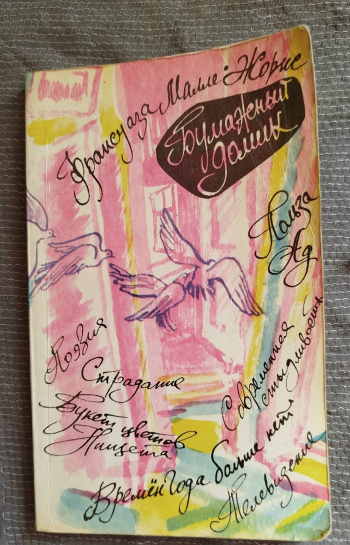 Франсуаза Малле-Жорис
Бумажный
домик
Польза
Ад
Поэзия
Страдание
Букет цветов
Нищета
Современная
стыдливость
Времён года больше нет
Телевидение